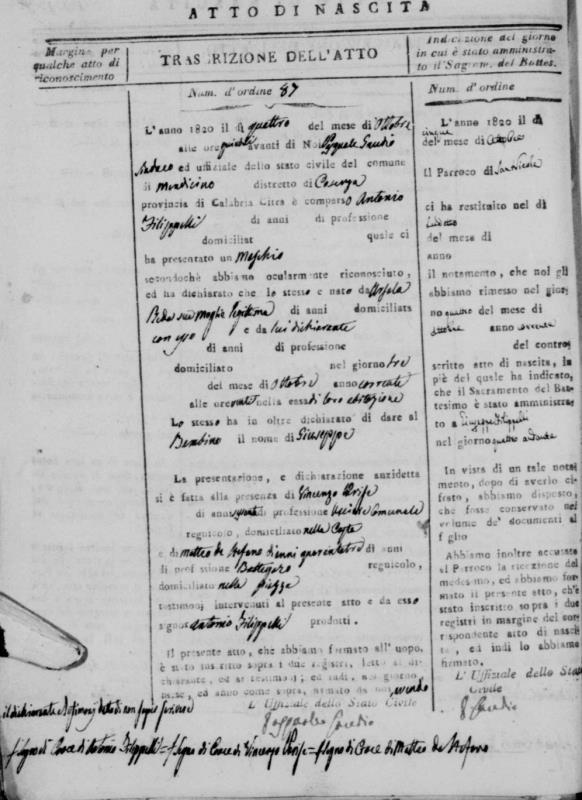 ATTO DI NASCITA
Margine per
qualche atto di
riconoscimento
TRASCRIZIONE DELL'ATTO
Num. d'ordine 87
L'anno 1820 il dì quattro del mese di Ottobre
alle ore quindici avanti di Noi Pasquale Gaudio
Sindaco ed uffiziale dello stato civile del comune
di Mendicino distretto di Cosenza
provincia di Calabria Citra è comparso Antonio
Filippelli di anni di professione
domiciliat quale ci
ha presentato un Maschio
secondochè abbiamo ocularmente riconosciuto,
ed ha dichiarato che lo stesso è nato da Orsola
sua moglie legittima di anni domiciliata
con esso e da lui dichiarante
di anni di professione
domiciliato nel giorno tre
del mese di Ottobre anno corrente
alle ore nella casa di loro abitazione
Lo stesso ha in oltre dichiarato di dare al
Bambino il nome di Giuseppe
La presentazione, e dichiarazione anzidetta
si è fatta alla presenza di Vincenzo
di anni di professione Comunale
regnicolo, domiciliato nelle
e di Matteo de Stefano di anni quarantatre di anni
di professione Bottegaro regnicolo,
domiciliato nella piazza
testimonj intervenuti al presente atto e da esso
signor Antonio Filippelli prodotti.
Il presente atto, che abbiamo formato all'uopo,
è stato inscritto sopra i due registri, letto al di-
chiarante, ed ai testimonj; ed indi, nel giorno,
mese, ed anno come sopra, firmato da noi, avendo
L'Uffiziale dello Stato Civile
il dichiarante e testimonj detto di non sapere scrivere
Pasquale Gaudio
Segno di Croce di Antonio Filippelli = Segno di Croce di Vincenzo = Segno di Croce di Matteo de Stefano
Indicazione del giorno
in cui è stato amministra-
to il Sagram. del Battes.
Num. d'ordine
L'anno 1820 il dì
cinque
del mese di Ottobre
Il Parroco di San Nicola
ci ha restituito nel dì
del mese di
anno
il notamento, che noi gli
abbiamo rimesso nel gior-
no quattro del mese di
Ottobre anno corrente
del contro-
scritto atto di nascita, in
piè del quale ha indicato,
che il Sacramento del Bat-
tesimo è stato amministra-
to a Giuseppe Filippelli
nel giorno quattro andante
In vista di un tale nota-
mento, dopo di averlo ci-
frato, abbiamo disposto,
che fosse conservato nel
volume de' documenti al
foglio
Abbiamo inoltre accusato
al Parroco la ricezione del
medesimo, ed abbiamo for-
mato il presente atto, ch'è
stato inscritto sopra i due
registri in margine del cor-
rispondente atto di nasci-
ta, ed indi lo abbiamo
firmato.
L'Uffiziale dello Stato
Civile
P Gaudio